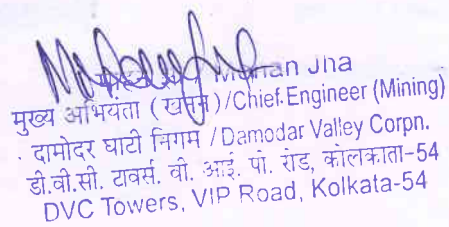 Mohan Jha
मुख्य अभियंता (खनन)/Chief.Engineer (Mining)
दामोदर घाटी निगम /Damodar Valley Corpn.
डी.वी.सी. टावर्स. वी. आई. पी. रोड, कोलकाता-54
DVC Towers, VIP Road, Kolkata-54